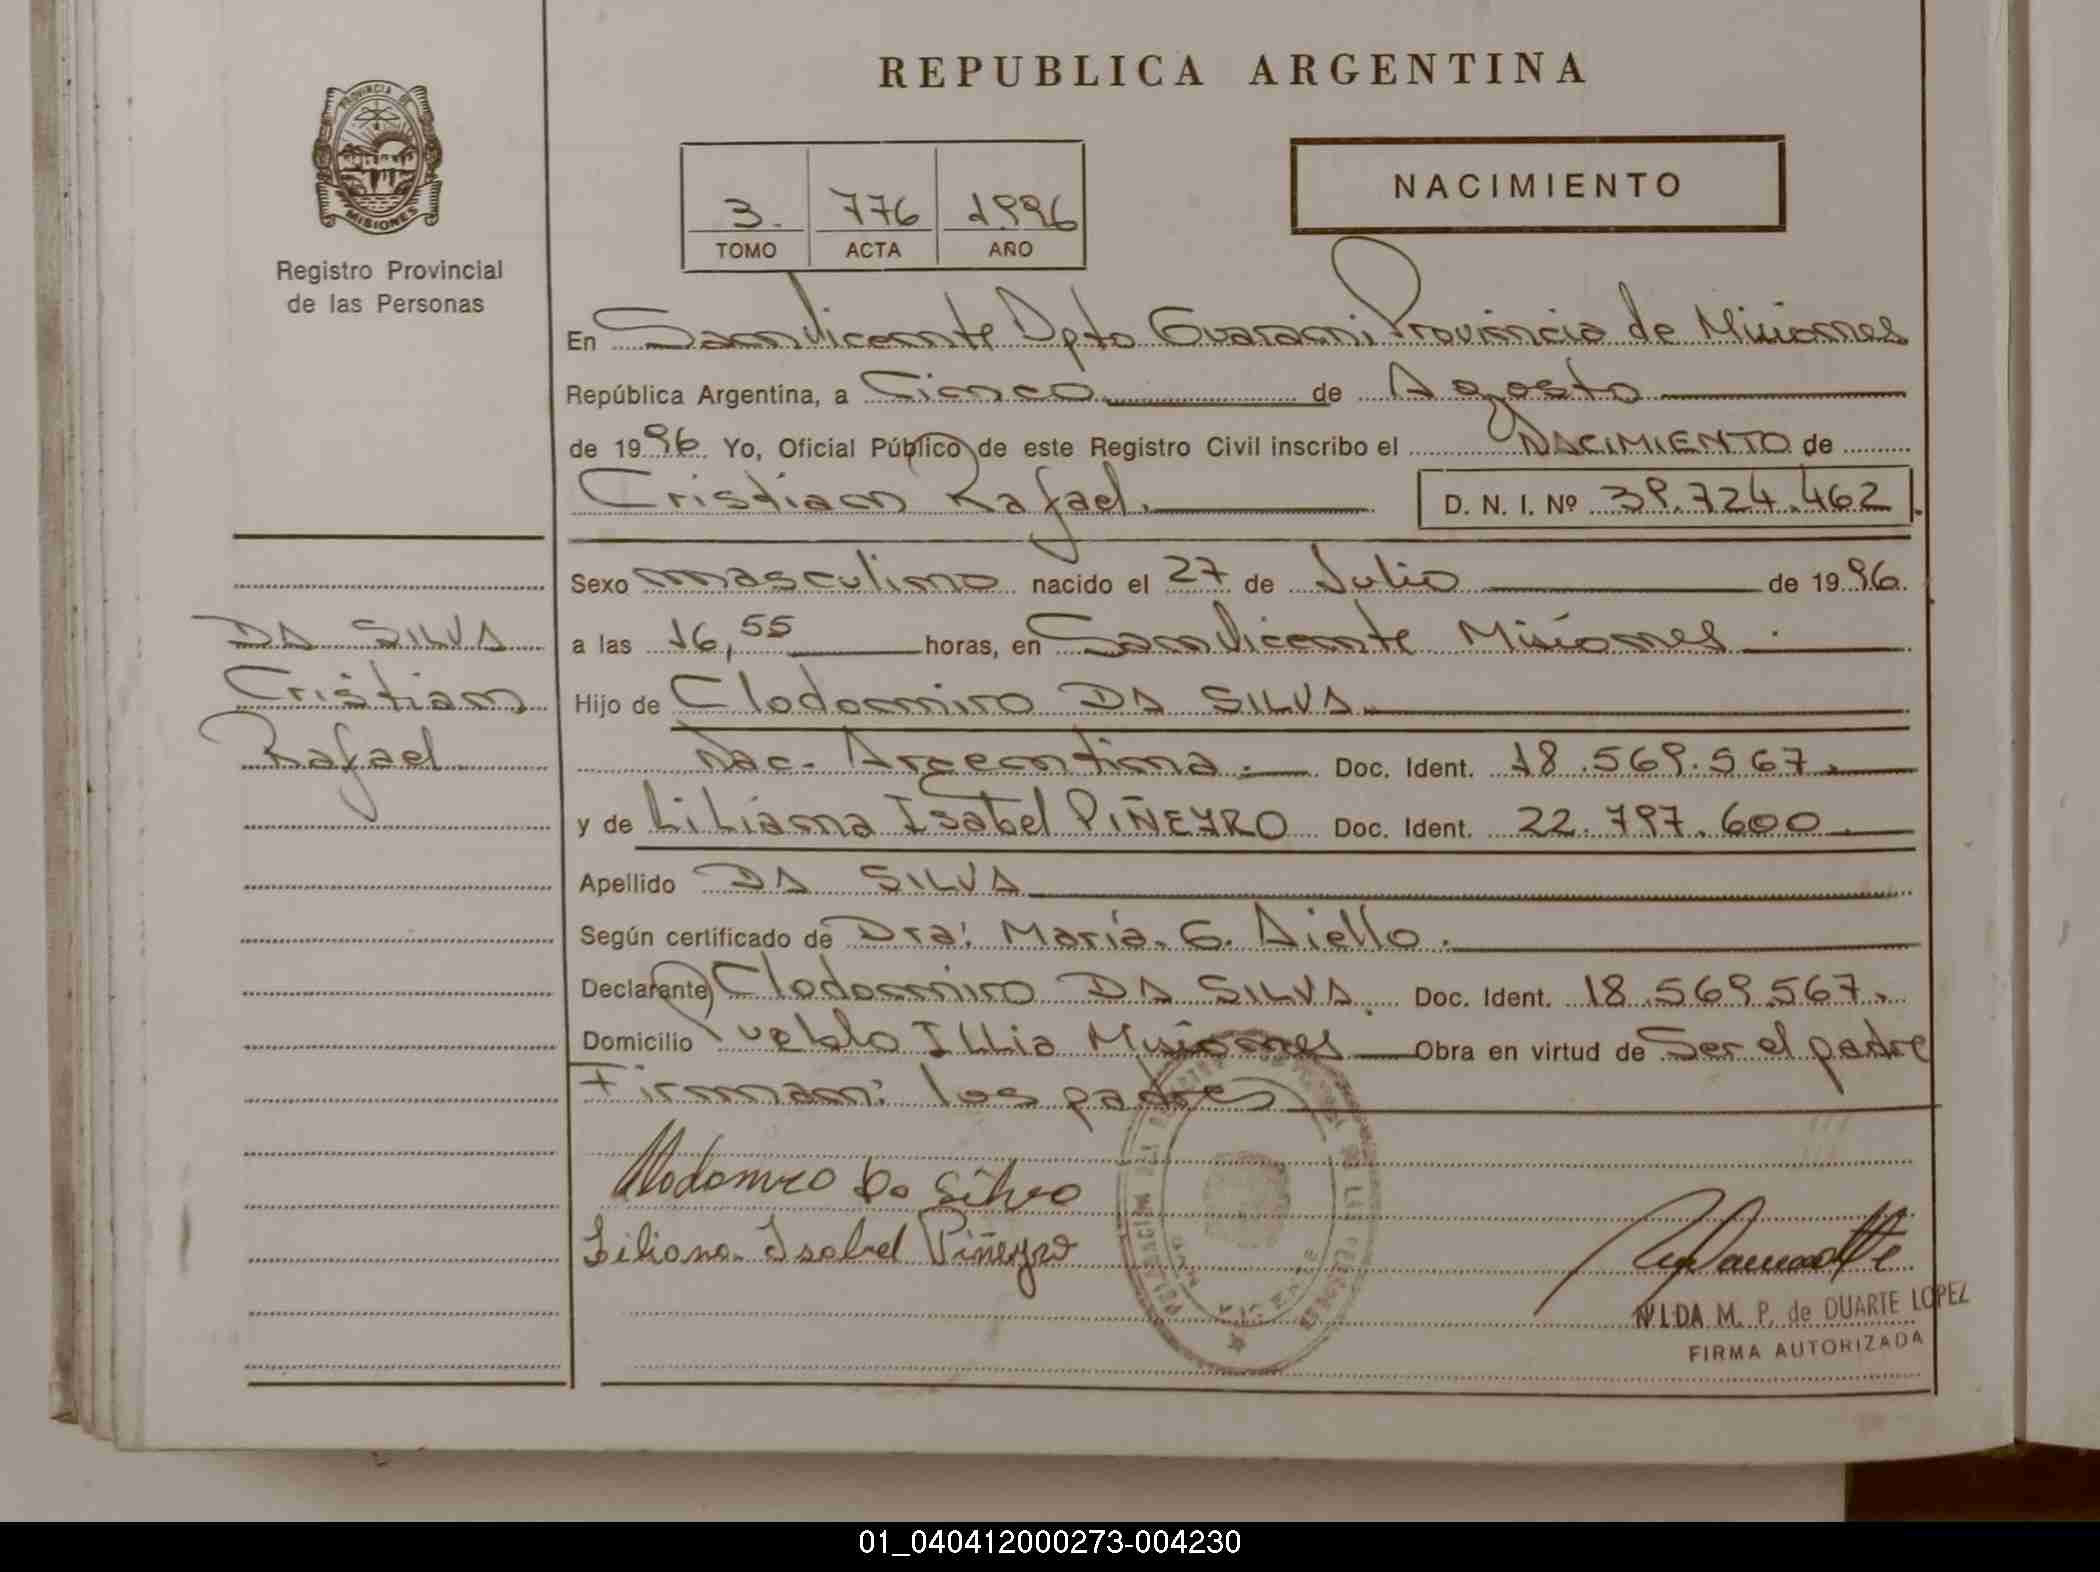 REPUBLICA ARGENTINA
PROVINCIA DE
MISIONES
Registro Provincial
de las Personas
3. 776 1996
TOMO ACTA AÑO
NACIMIENTO
En San Vicente Dpto Guarani Provincia de Misiones
República Argentina, a Cinco de Agosto
de 1996 Yo, Oficial Público de este Registro Civil inscribo el NACIMIENTO de
Cristian Rafael. D. N. I. Nº 39.724.462
Sexo masculino nacido el 27 de Julio de 1996.
DA SILVA
Cristian
Rafael
a las 16,55 horas, en San Vicente Misiones
Hijo de Clodomiro DA SILVA
Nac. Argentina. Doc. Ident. 18.569.567.
y de Liliana Isabel PIÑEYRO Doc. Ident. 22.797.600
Apellido DA SILVA
Según certificado de Dra: María. G. Aiello.
Declarante Clodomiro DA SILVA. Doc. Ident. 18.569.567.
Domicilio Pueblo Illia Misiones Obra en virtud de Ser el padre
Firman: los padres
Clodomiro Da Silva
Liliana Isabel Piñeyro
NILDA M. P. de DUARTE LOPEZ
FIRMA AUTORIZADA
01_040412000273-004230